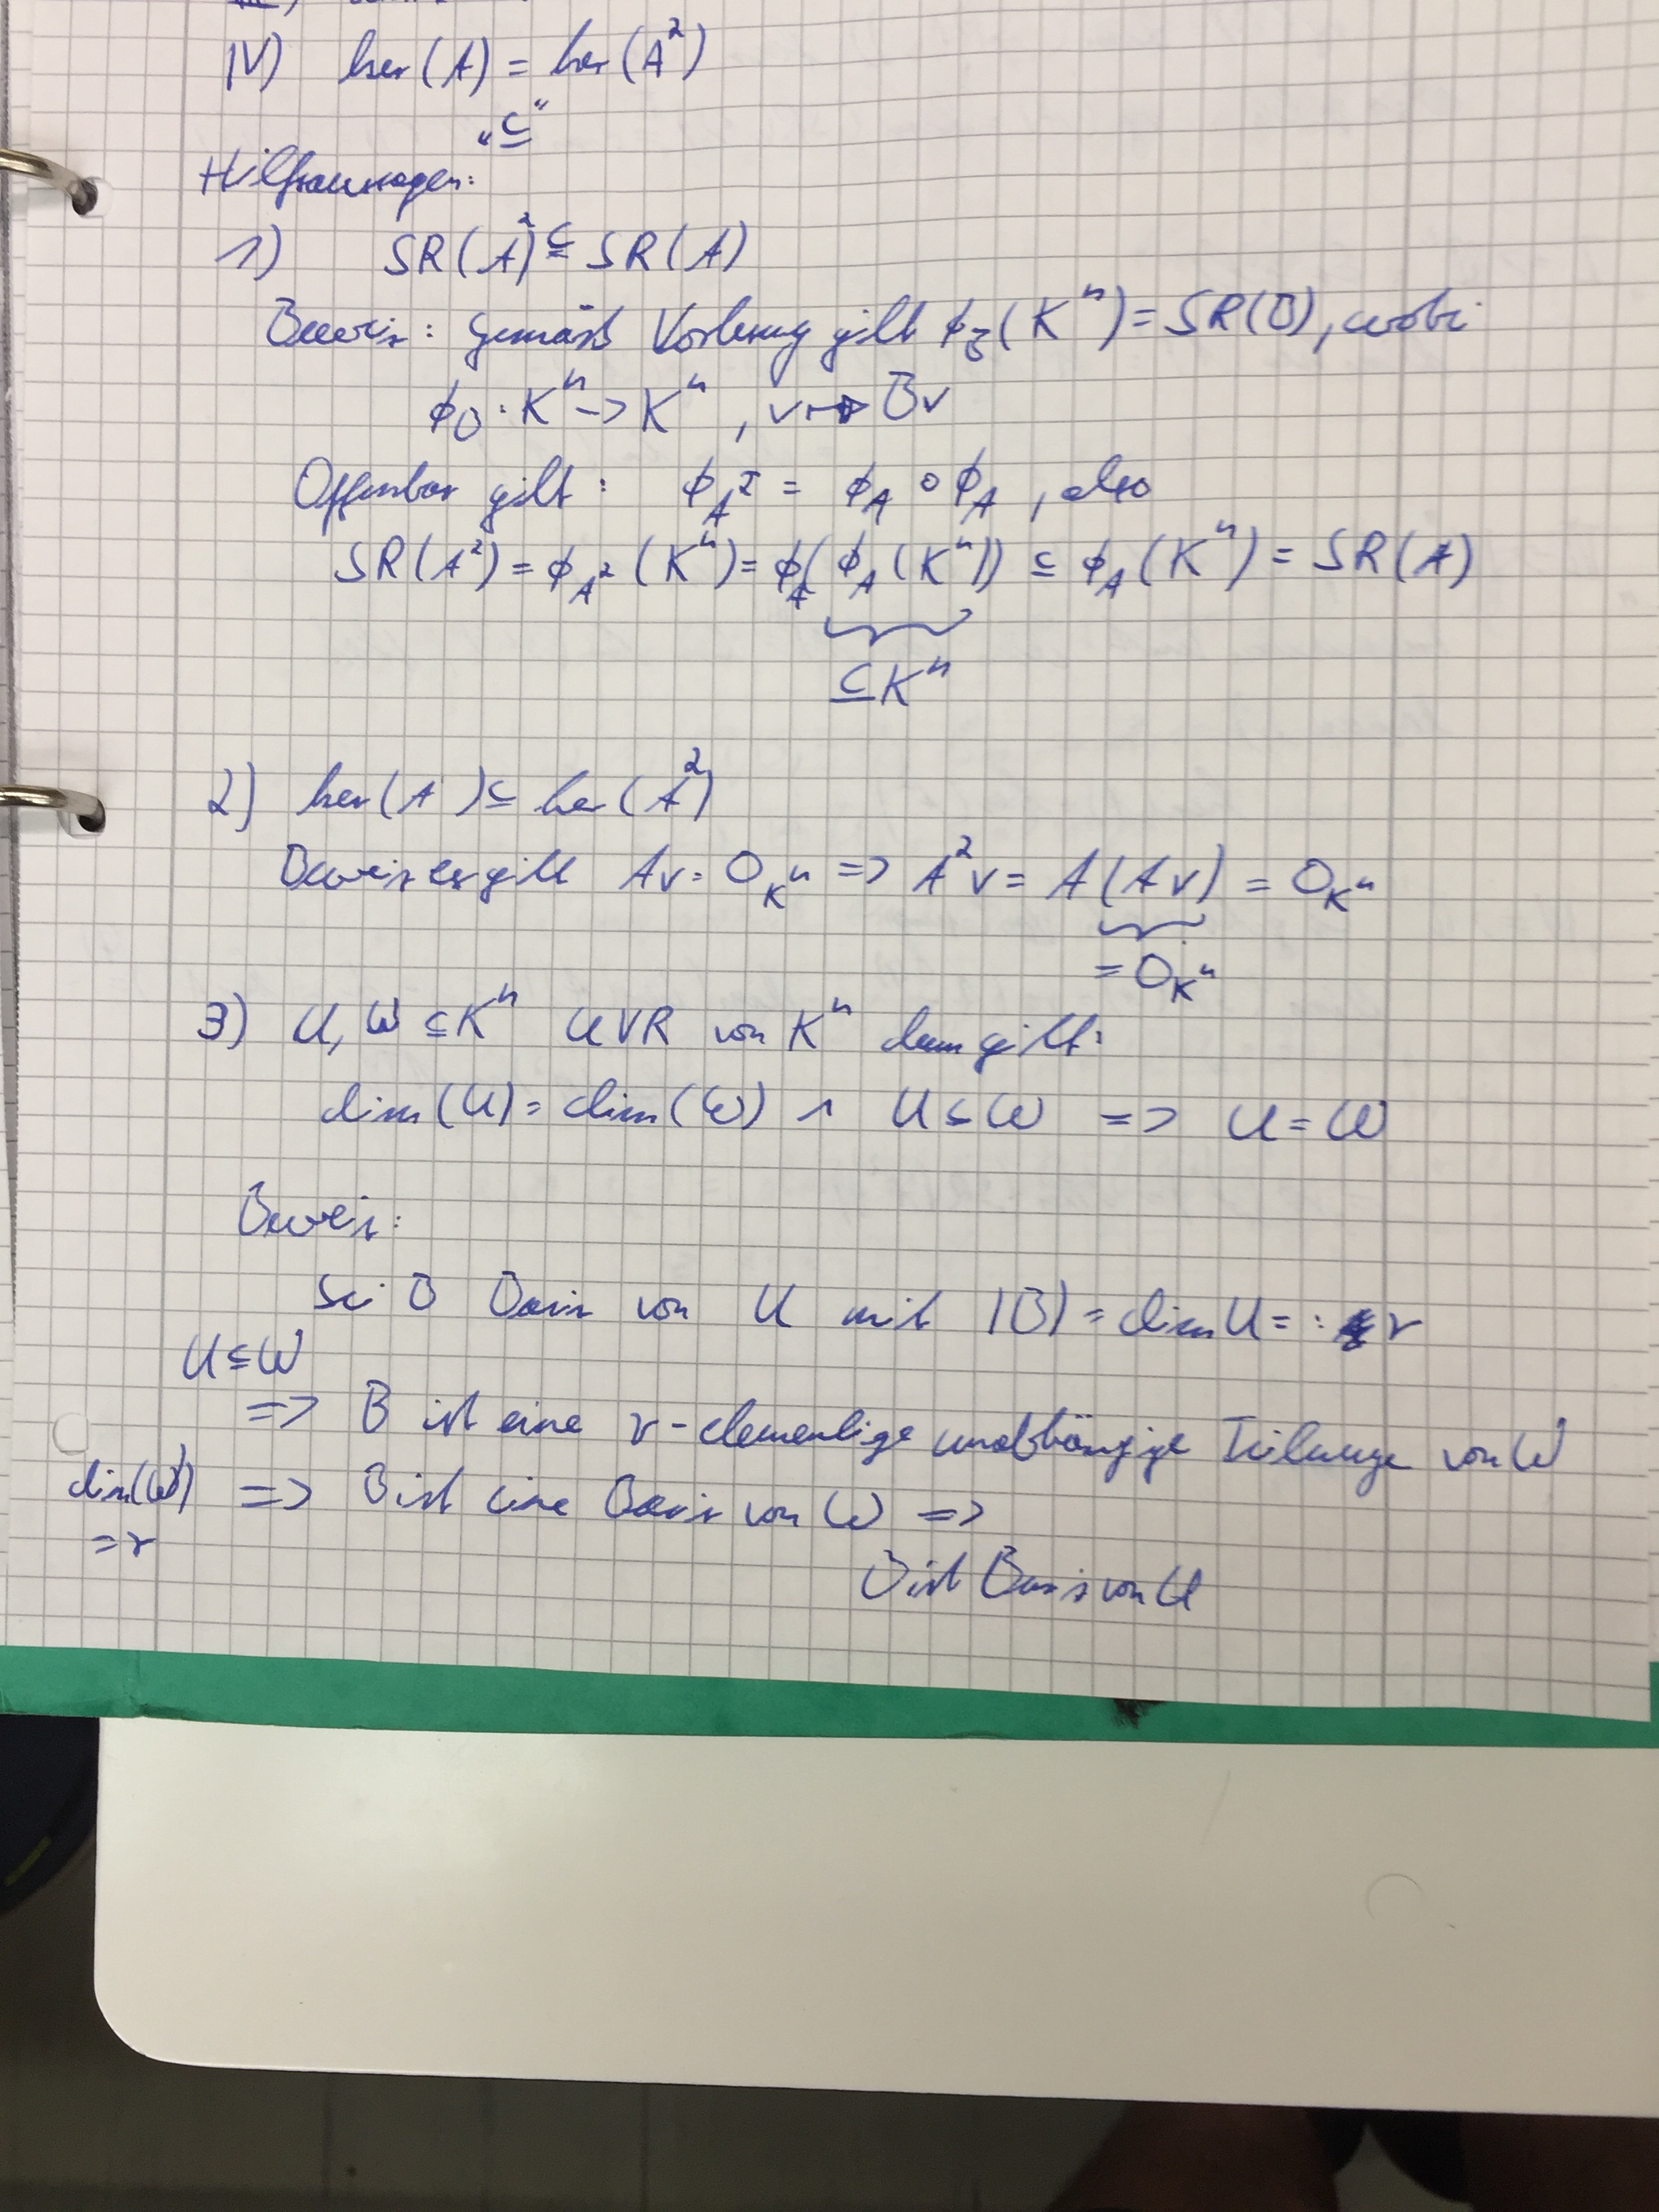 IV) ker(A) = ker(A²)
„⊆“
Hilfsaussagen:
1) SR(A²) ⊆ SR(A)
Beweis: gemäß Vorlesung gilt ϕ_B(Kⁿ) = SR(B), wobei
ϕ_B : Kⁿ -> Kⁿ, v ↦ Bv
Offenbar gilt: ϕ_A² = ϕ_A ∘ ϕ_A, also
SR(A²) = ϕ_A²(Kⁿ) = ϕ_A(ϕ_A(Kⁿ)) ⊆ ϕ_A(Kⁿ) = SR(A)
⊆ Kⁿ
2) ker(A) ⊆ ker(A²)
Beweis es gilt Av = 0_Kⁿ => A²v = A(Av) = 0_Kⁿ
= 0_Kⁿ
3) U, W ⊆ Kⁿ UVR von Kⁿ dann gilt:
dim(U) = dim(W) ∧ U ⊆ W => U = W
Beweis:
Sei B Basis von U mit |B| = dim U =: r
U ⊆ W
=> B ist eine r-elementige unabhängige Teilmenge von W
dim(W) => B ist eine Basis von W =>
= r
B ist Basis von U